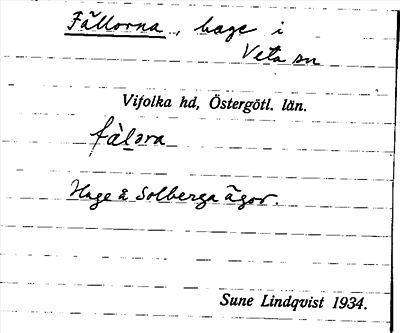 Fällorna, hage i
Veta sn
Vifolka hd, Östergötl. län.
fàlɔra
Hage å Solberga ägor.
Sune Lindqvist 1934.